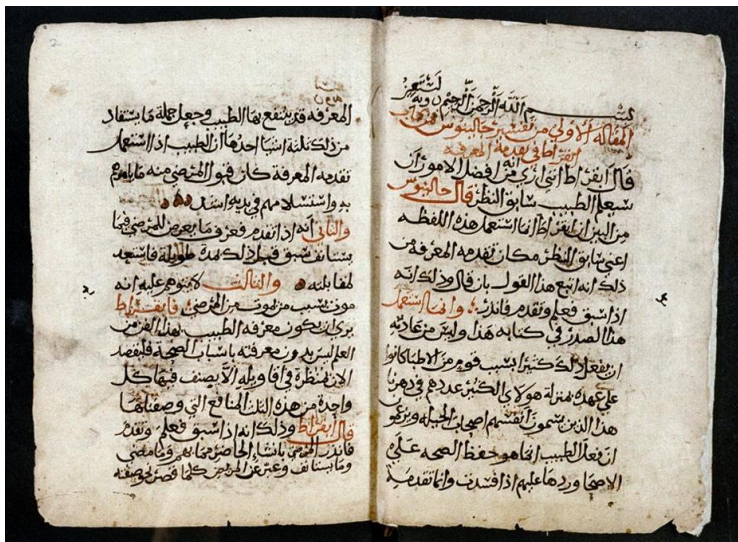 بسم الله الرحمن الرحيم وبه نستعين
المقالة الاولى من تفسير جالينوس لكتاب
ابقراط في تقدمة المعرفة
قال ابقراط انني ارى انه من افضل الامور ان
يستعمل الطبيب سابق النظر قال جالينوس
من البين ان ابقراط انما استعمل هذه اللفظه
اعني سابق النظر مكان تقدمه المعرفه من
ذلك انه اتبع هذا القول بان قال وذلك انه
اذا سبق فعلم وتقدم فانذر وانما استعمل
هذا الصدر في كتابه هذا وليس من عادته
ان يفعل ذلك كثيرا بسبب قوم من الاطبا كانوا
على عهده بمنزلة هولاي الكثير عددهم في دهرنا
هذا الذين يسمون انفسهم اصحاب الحيله ويزعمو
ان فعل الطبيب انما هو حفظ الصحه علي
الاصحا وردها عليهم اذا فسدت وانما تقدمة
المعرفه قد ينتفع بها الطبيب وجعل جملة ما يستفاد
من ذلك ثلثة اشيا احدها ان الطبيب اذا استعمل
تقدمه المعرفة كان قبول المرضى منه ما يامرهم
به واستسلامهم في يديه اشد
والثاني انه اذا تقدم فعرف ما يعرض للمرضى فيما
يستانف سبق قبل ذلك بمدة طويلة فاستعد
لمقابلته والثالث لا يتوهم عليه انه
موت بسبب من يموت من المرضى فابقراط
يرى ان يكون معرفه الطبيب بهذا الفن من
العلم ليس بدون معرفته باسباب الصحة فليقصد
الان لينظر في اقاويله الا يصنف فيها كل
واحدة من هذه الثلث المنافع التي وصفناها
قال ابقراط وذلك انه اذا سبق فعلم وتقدم
فانذر المرضى بالشي الحاضر مما بهم وما مضى
وما يستانف وعبر عن المريض كلما قصر عن صفته